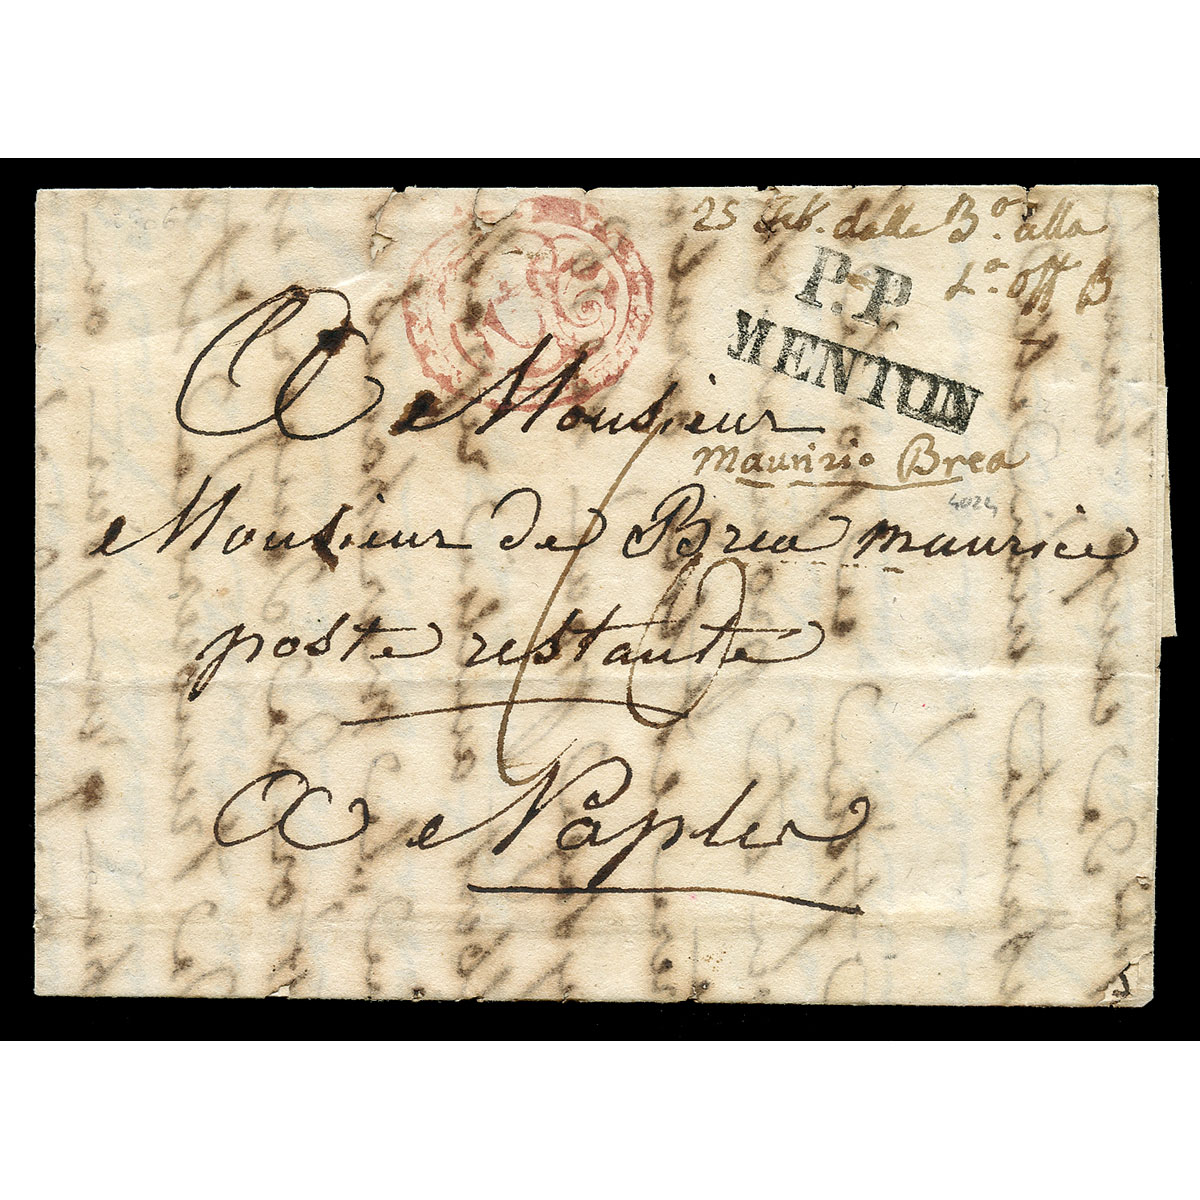 25 Feb. dalla B.a alla
L.a off B
P.P.
MENTON
A Monsieur
Maurizio Brea
4024
Monsieur de Brea Maurice
poste restante
10
A Naples